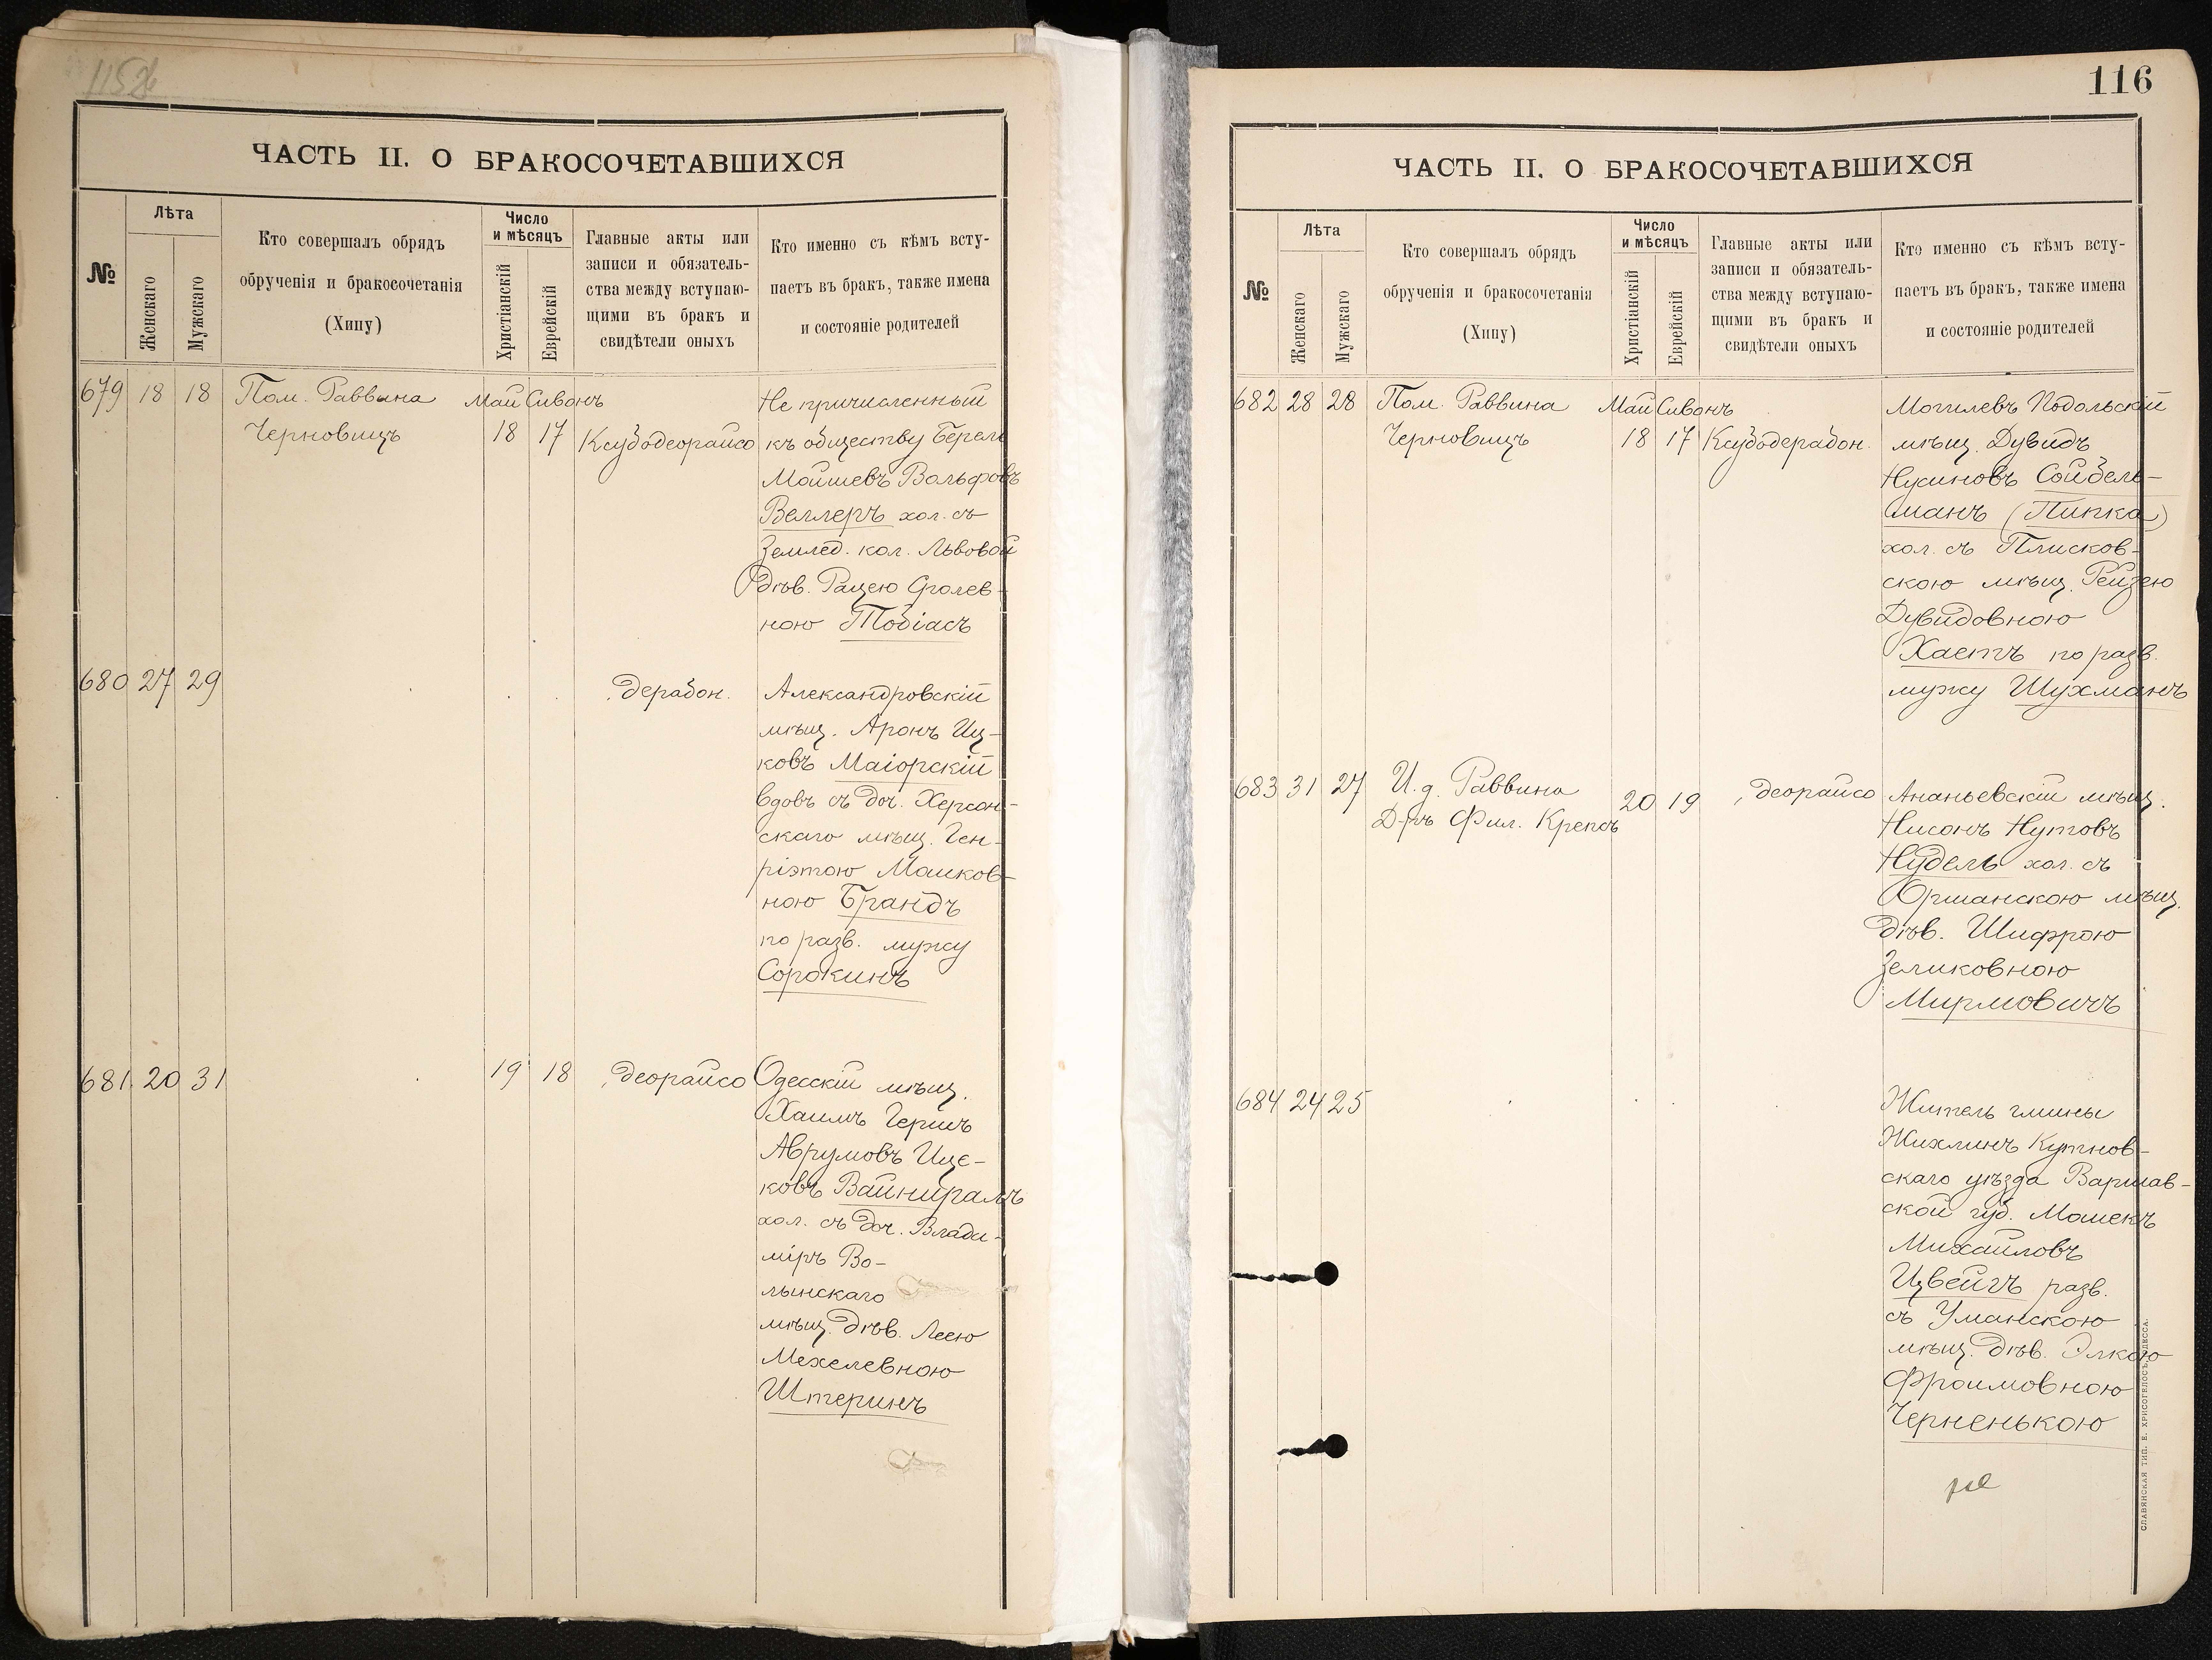 115
ЧАСТЬ II. О БРАКОСОЧЕТАВШИХСЯ
№
Лѣта
Женскаго
Мужскаго
Кто совершалъ обрядъ
обрученія и бракосочетанія
(Хипу)
Число
и мѣсяцъ
Христіанскій
Еврейскій
Главные акты или
записи и обязатель-
ства между вступаю-
щими въ бракъ и
свидѣтели оныхъ
Кто именно съ кѣмъ всту-
паетъ въ бракъ, также имена
и состояніе родителей
679 18 18 Пом. Раввина Май Сивонъ
Черновицъ 18 17 Ксубодеорайсо
Не причисленный
къ обществу Берель
Мойшевъ Вольфовъ
Веллеръ хол. съ
Землед. кол. Львовой
дѣв. Рацею Сролев-
ною Тобіасъ
680 27 29 „дерабон.
Александровскій
мѣщ. Аронъ Иц-
ковъ Маіорскій
вдовъ съ доч. Херсон-
скаго мѣщ. Ген-
ріэтою Машков-
ною Брандъ
по разв. мужу
Сорокинъ
681 20 31 19 18 „деорайсо
Одесскій мѣщ.
Хаимъ Гершъ
Аврумовъ Ице-
ковъ Вайншралъ
хол. съ доч. Влади-
міръ Во-
лынскаго
мѣщ. дѣв. Леею
Мехелевною
Штеринъ
116
ЧАСТЬ II. О БРАКОСОЧЕТАВШИХСЯ
№
Лѣта
Женскаго
Мужскаго
Кто совершалъ обрядъ
обрученія и бракосочетанія
(Хипу)
Число
и мѣсяцъ
Христіанскій
Еврейскій
Главные акты или
записи и обязатель-
ства между вступаю-
щими въ бракъ и
свидѣтели оныхъ
Кто именно съ кѣмъ всту-
паетъ въ бракъ, также имена
и состояніе родителей
682 28 28 Пом. Раввина Май Сивонъ
Черновицъ 18 17 Ксубодерабон.
Могилевъ Подольскій
мѣщ. Дувидъ
Нусиновъ Сойбель-
манъ (Пипка)
хол. съ Плисков-
скою мѣщ. Рейзею
Дувидовною
Хаетъ по разв.
мужу Шухманъ
683 31 27 И.д. Раввина
Д-ръ Фил. Крепсъ 20 19 „деорайсо
Ананьевскій мѣщ.
Нисонъ Нутовъ
Нудель хол. съ
Оршанскою мѣщ.
дѣв. Шифрою
Зеликовною
Мирмовичъ
684 24 25
Житель гмины
Жихлинъ Кутнов-
скаго уѣзда Варшав-
ской губ. Мошекъ
Михайловъ
Цвейгъ разв.
съ Уманскою
мѣщ. дѣв. Элкою
Фроимовною
Черненькою
СЛАВЯНСКАЯ ТИП. Е. ХРИСОГЕЛОСЪ, ОДЕССА.